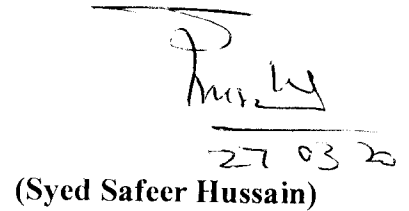 27 03 20
(Syed Safeer Hussain)